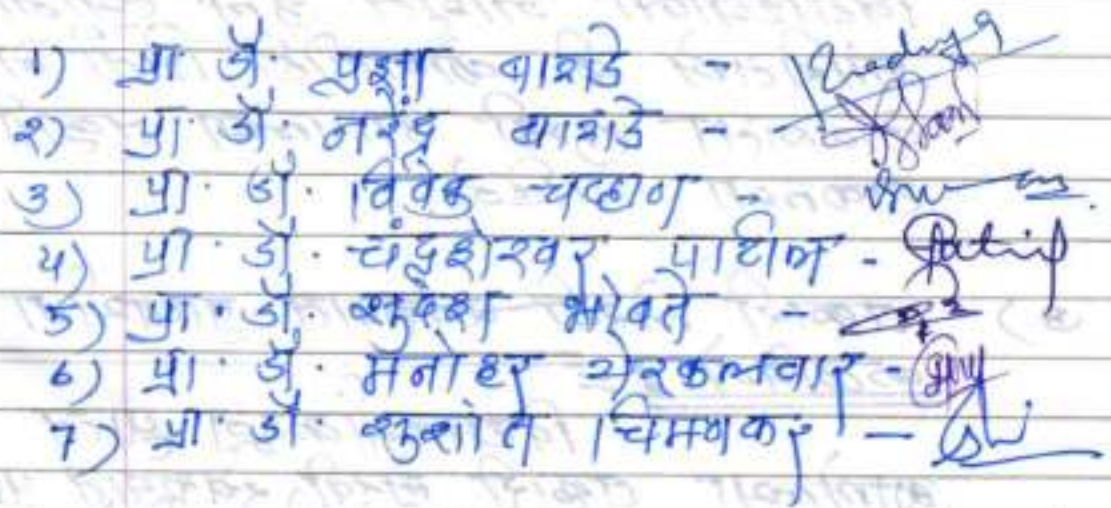 1) प्रा डॉ. प्रज्ञा बागडे -
२) प्रा. डॉ. नरेंद्र बागडे -
3) प्रा. डॉ. विवेक चव्हाण -
४) प्रा. डॉ. चंद्रशेखर पाटील - Patil
5) प्रा. डॉ. सुदेश भोवते -
6) प्रा. डॉ. मनोहर येरकलवार -
7) प्रा. डॉ. सुशांत चिमणकर -